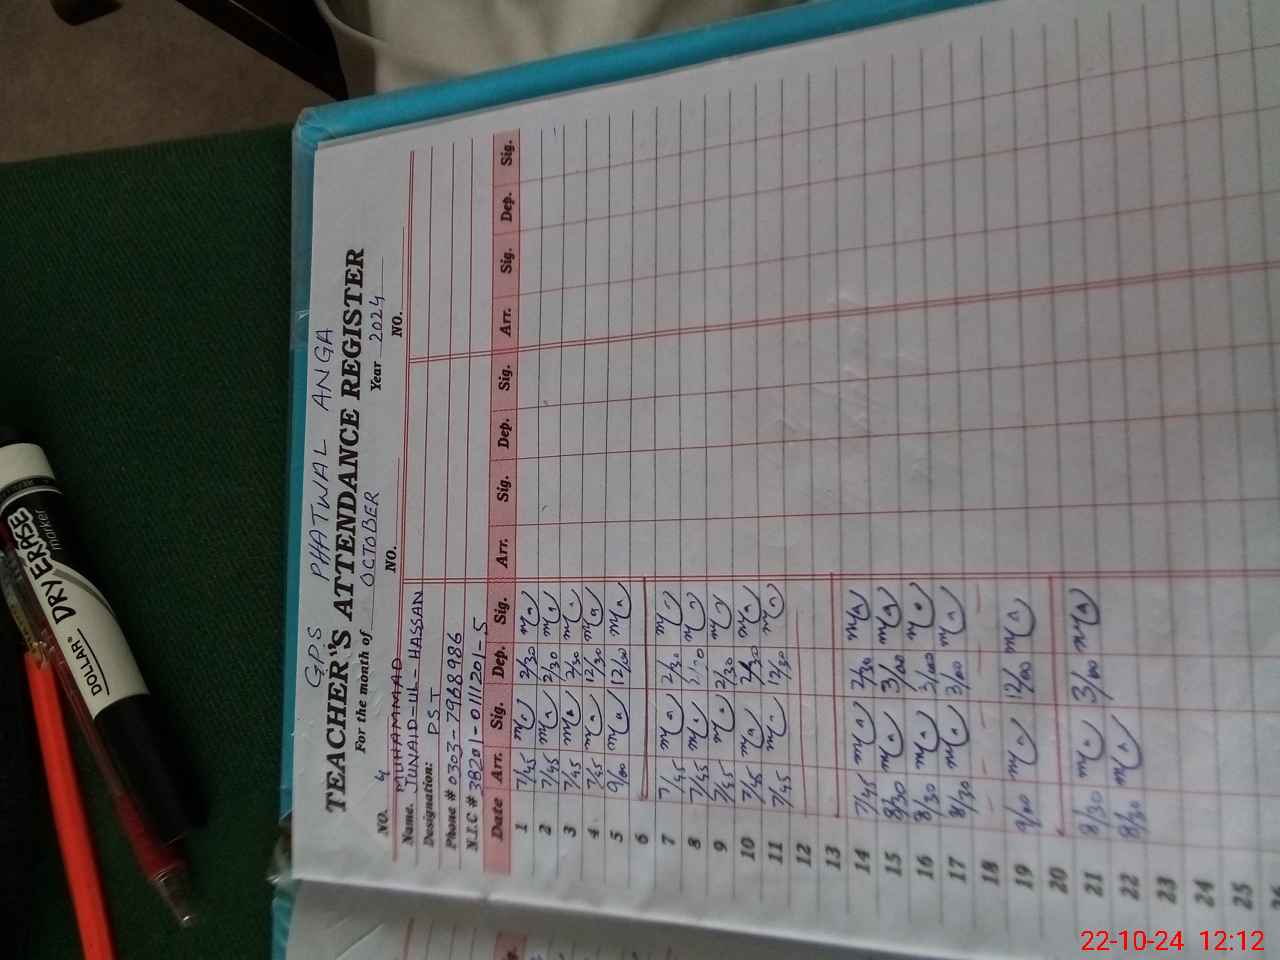 GPS PHATWAL ANGA
TEACHER'S ATTENDANCE REGISTER
For the month of OCTOBER Year 2024
NO. 4 NO. NO.
MUHAMMAD
Name. JUNAID-UL-HASSAN
Designation: PST
Phone # 0303-7968986
N.I.C # 38201-0111201-5
Date Arr. Sig. Dep. Sig. Arr. Sig. Dep. Sig. Arr. Sig. Dep. Sig.
1 7/45 2/30
2 7/45 2/30
3 7/45 2/30
4 7/45 12/30
5 9/00 12/00
6
7 7/45 2/30
8 7/45
9 7/45 2/30
10 7/45 2/30
11 7/45 12/30
12
13
14 7/45 2/30
15 8/30 3/00
16 8/30 3/00
17 8/30 3/00
18
19 9/00 12/00
20
21 8/30 3/00
22 8/30
23
24
25
26
DOLLAR DRY ERASE marker
22-10-24 12:12